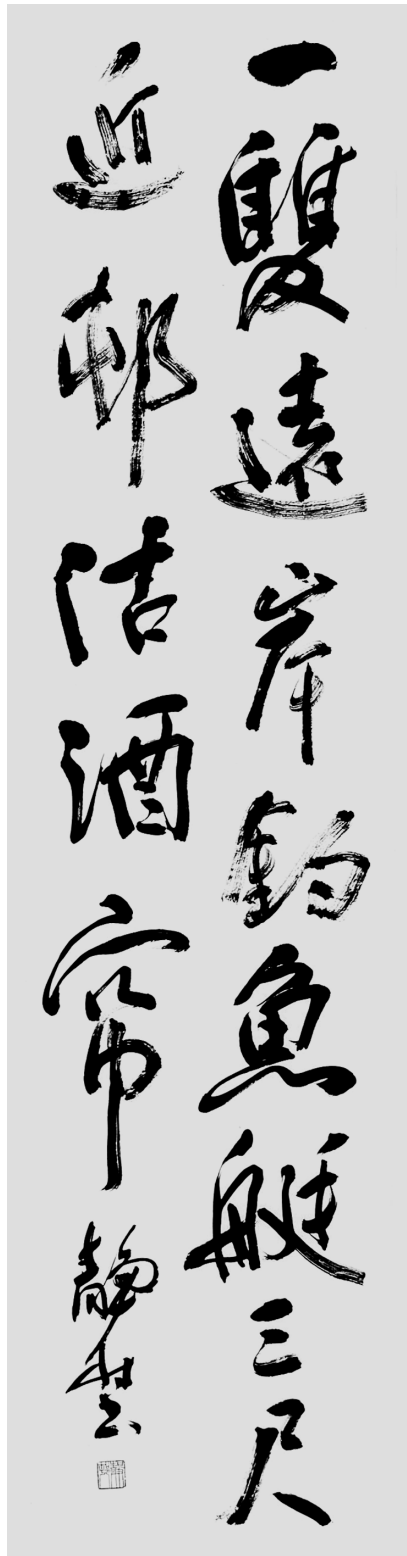 一雙遠岸釣魚艇三尺
近邨沽酒帘 靜